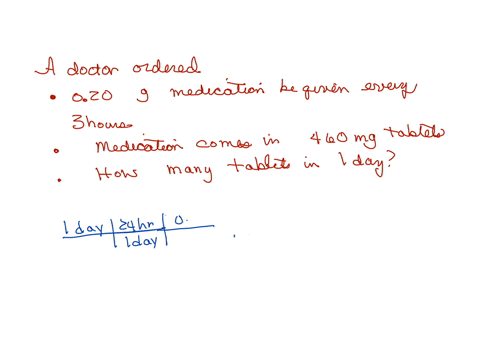 A doctor ordered
• 0.20 g medication be given every
3 hours
• Medication comes in 460 mg tablets
• How many tablets in 1 day?
1 day | 24 hr | 0.
1 day